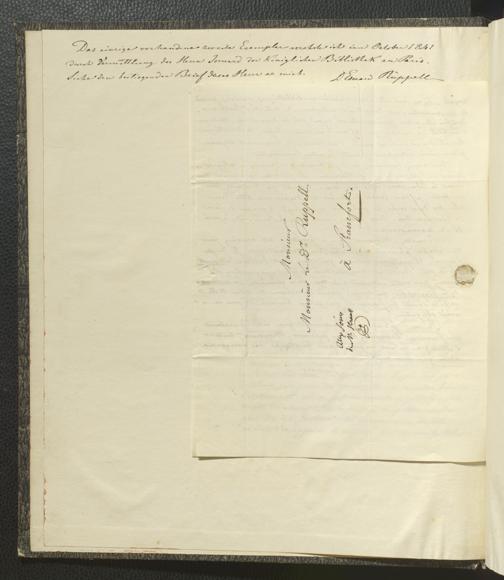 Das einzige vorhandene zweite Exemplar machte ich im October 1841
durch Vermittlung des Herrn Jomard der Königlichen Bibliothek in Paris.
Siehe den beiliegenden Brief dieses Herrn an mich. Dr Eduard Rüppell
Monsieur
Monsieur le Dr. Ruppell.
à Francfort.